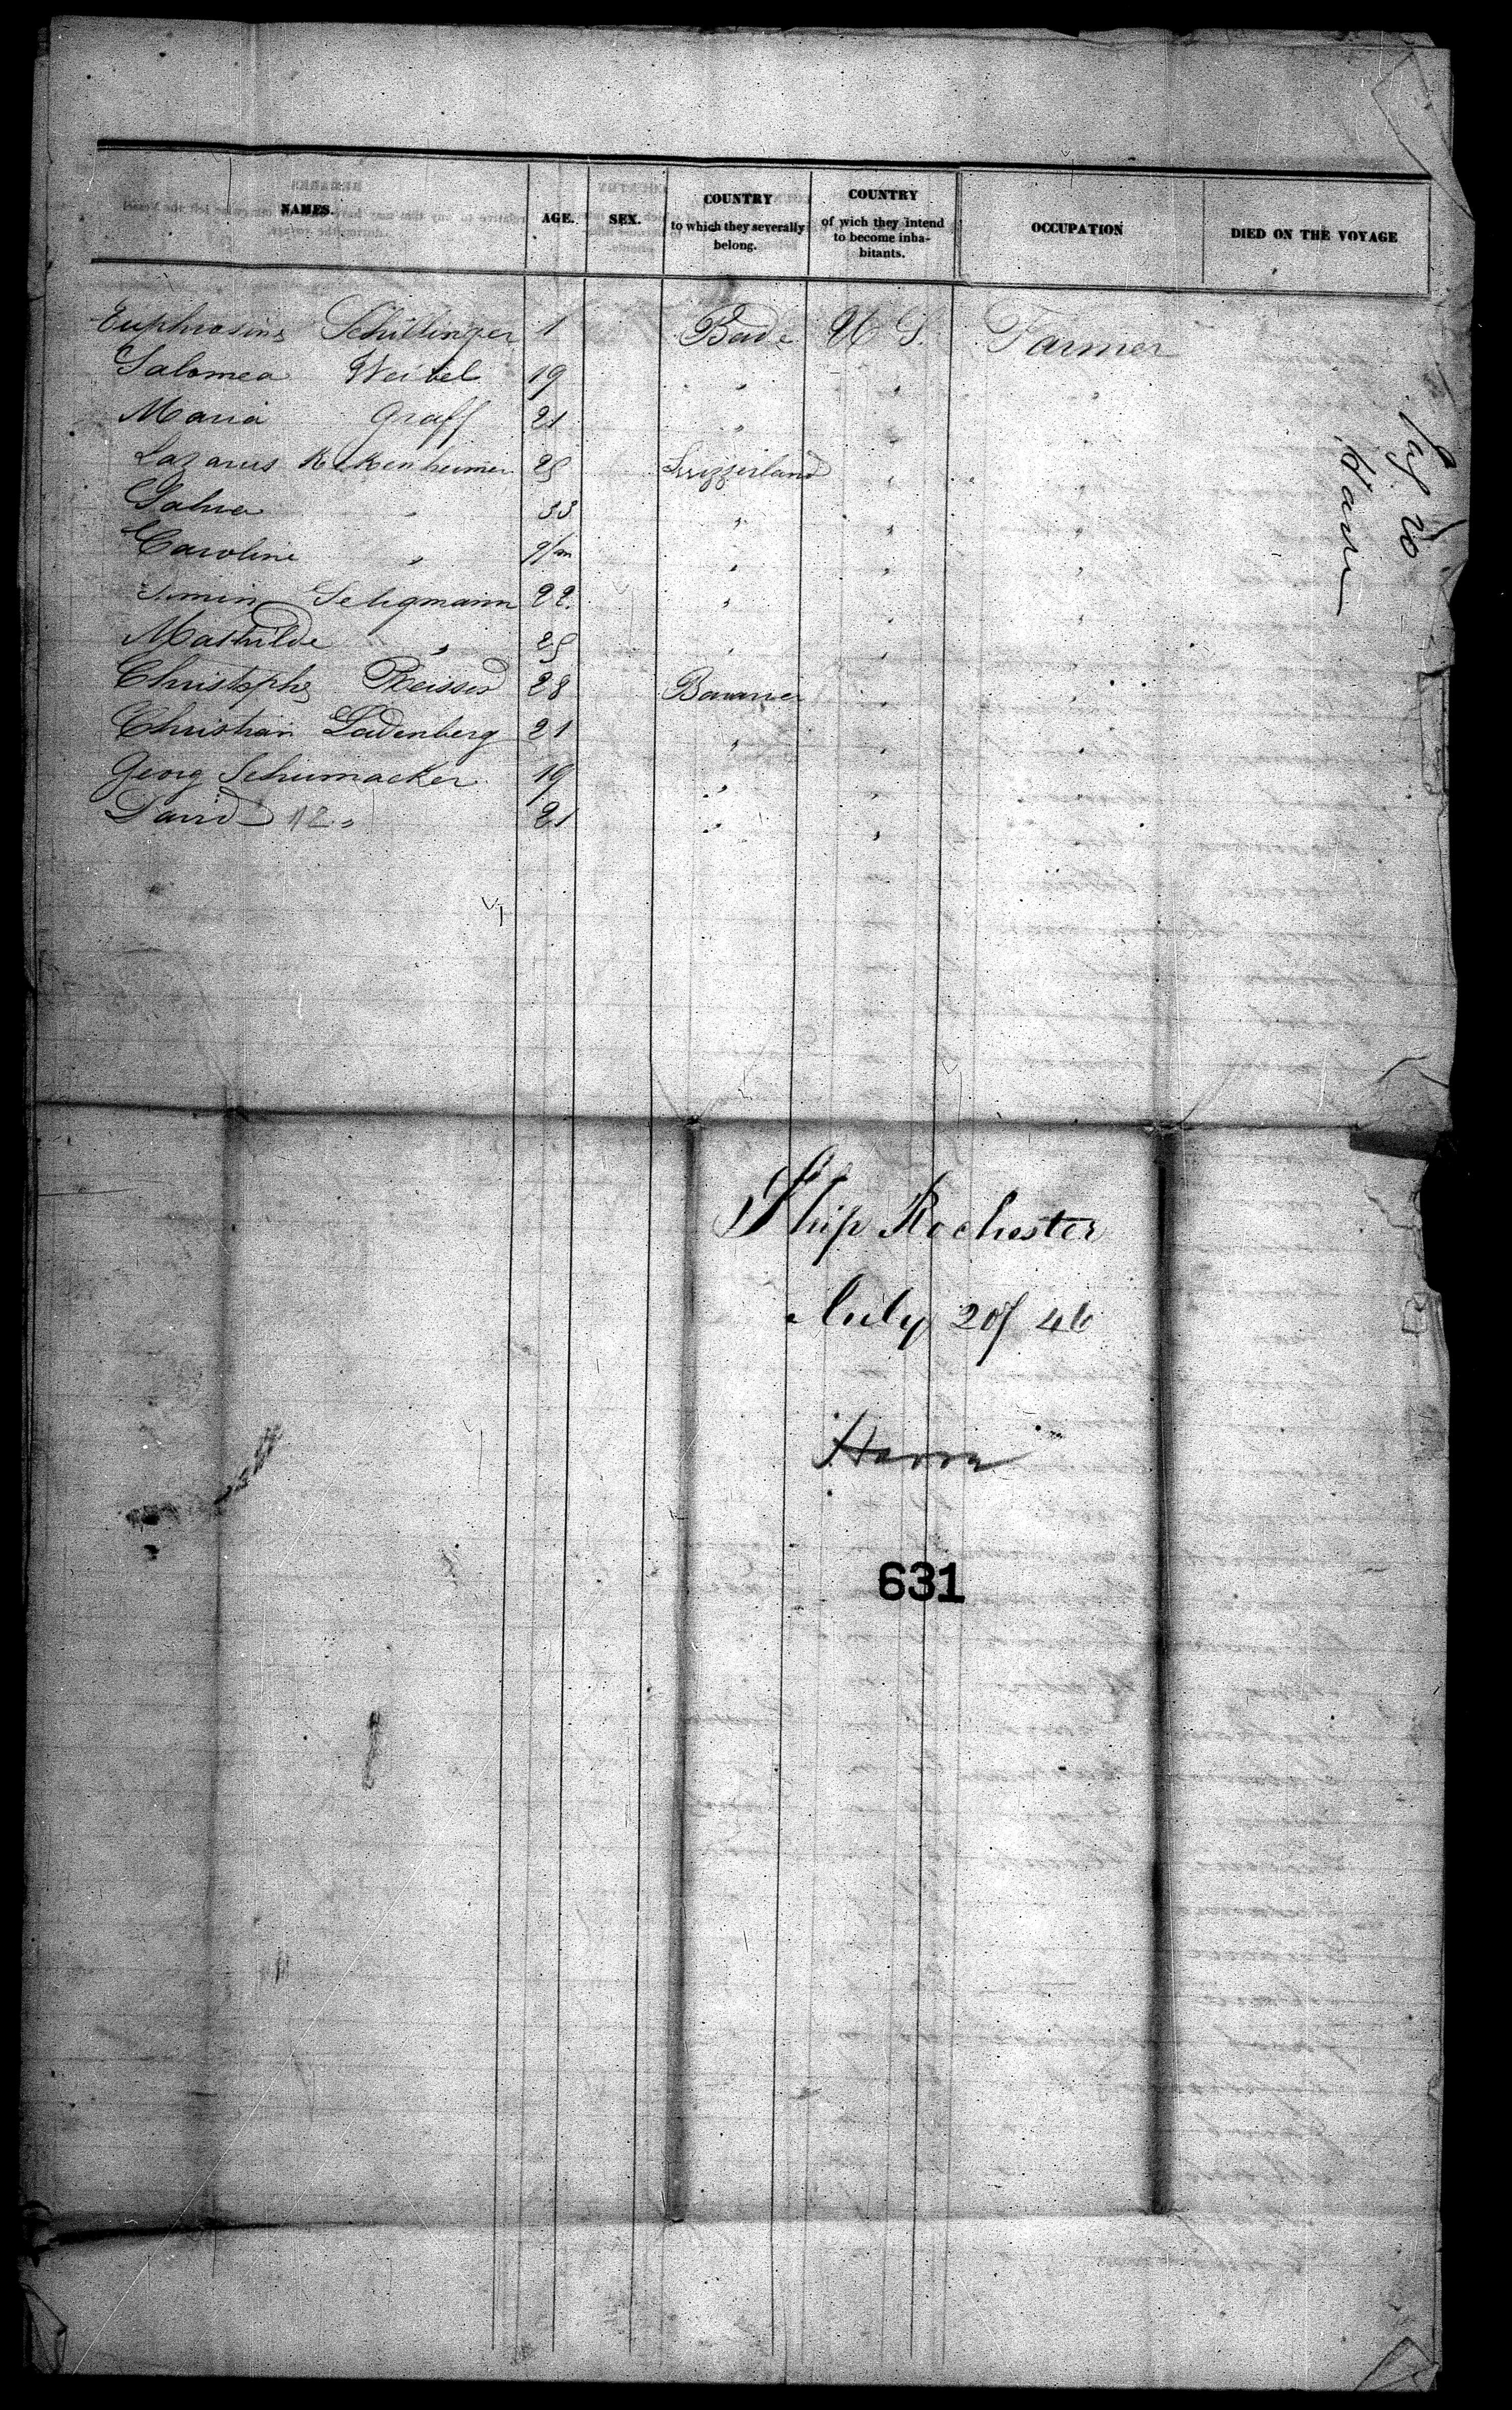 NAMES. AGE. SEX. COUNTRY to which they severally belong. COUNTRY of wich they intend to become inhabitants. OCCUPATION DIED ON THE VOYAGE
Euphrosine Schillinger 1 Bade U S. Farmer
Salomea Weibel 19 " " "
Maria Graff 21 " "
Lazarus 25 Swizzerland " "
" 33 " " "
Caroline " 9/m " " "
Seligmann 22 " " "
Mathilde " 25 " " "
Christophe 28 Bavaria " "
Christian Ladenberg 21 " " "
Georg Schumacker 19 " " "
David 12 " 21 " "
July 20
Havre
Ship Rochester
July 20/ 46
Havre
631